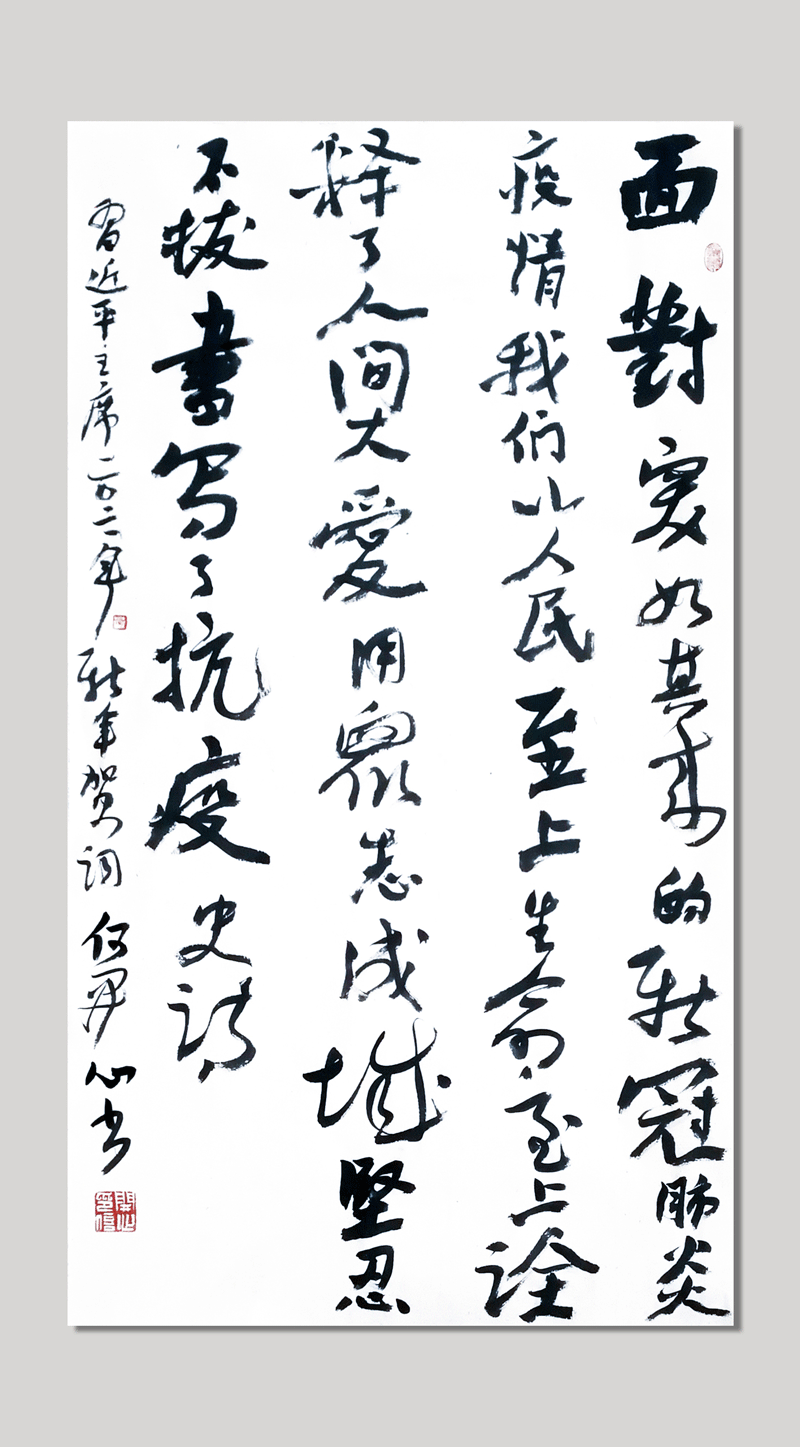 面對突如其来的新冠肺炎
疫情我们以人民至上生命至上诠
释了人间大愛用眾志成城堅忍
不拔書写了抗疫史诗
習近平主席二〇二一年新年贺词何開心书
開心